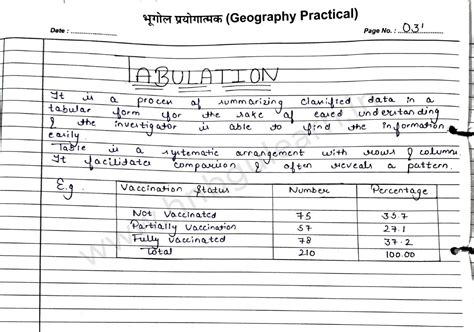 भूगोल प्रयोगात्मक (Geography Practical)
Date : Page No. : 031
TABULATION
It is a process of summarizing classified data in a
tabular form for the sake of eased understanding
& the investigator is able to find the information
easily.
Table is a systematic arrangement with rows & columns
It facilitates comparison & often reveals a pattern.
E.g. Vaccination Status Number Percentage
Not Vaccinated 75 35.7
Partially Vaccination 57 27.1
Fully Vaccinated 78 37.2
Total 210 100.00